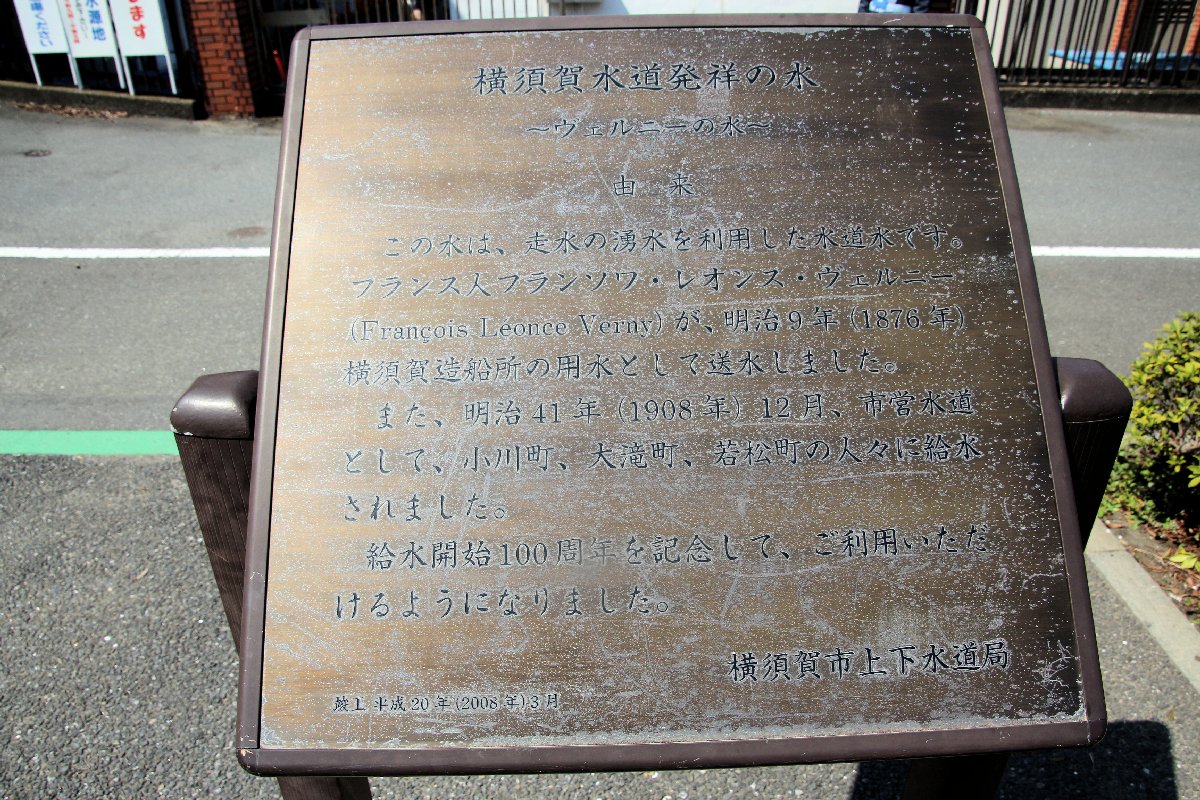 横須賀水道発祥の水
～ヴェルニーの水～
由 来
この水は、走水の湧水を利用した水道水です。
フランス人フランソワ・レオンス・ヴェルニー
(François Léonce Verny) が、明治9年 (1876年)
横須賀造船所の用水として送水しました。
また、明治41年 (1908年) 12月、市営水道
として、小川町、大滝町、若松町の人々に給水
されました。
給水開始100周年を記念して、ご利用いただ
けるようになりました。
横須賀市上下水道局
竣工 平成20年(2008年)3月
水源地
ます